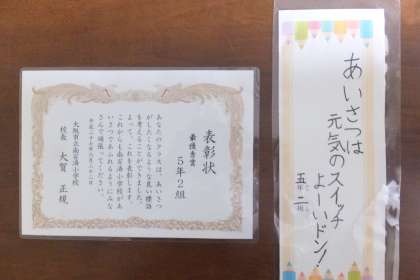 表彰状
最優秀賞
５年２組
あなたのクラスは、あいさつ
がしたくなるような良い標語
を考えることができました。
よって、これを表彰します。
これからも南百済小学校があ
いさつであふれるようにみな
さんで頑張ってください。
平成二十七年六月二十二日
大阪市立南百済小学校
校長　大賀　正規
あいさつは
元気のスイッチ
よーいドン！
五年二組